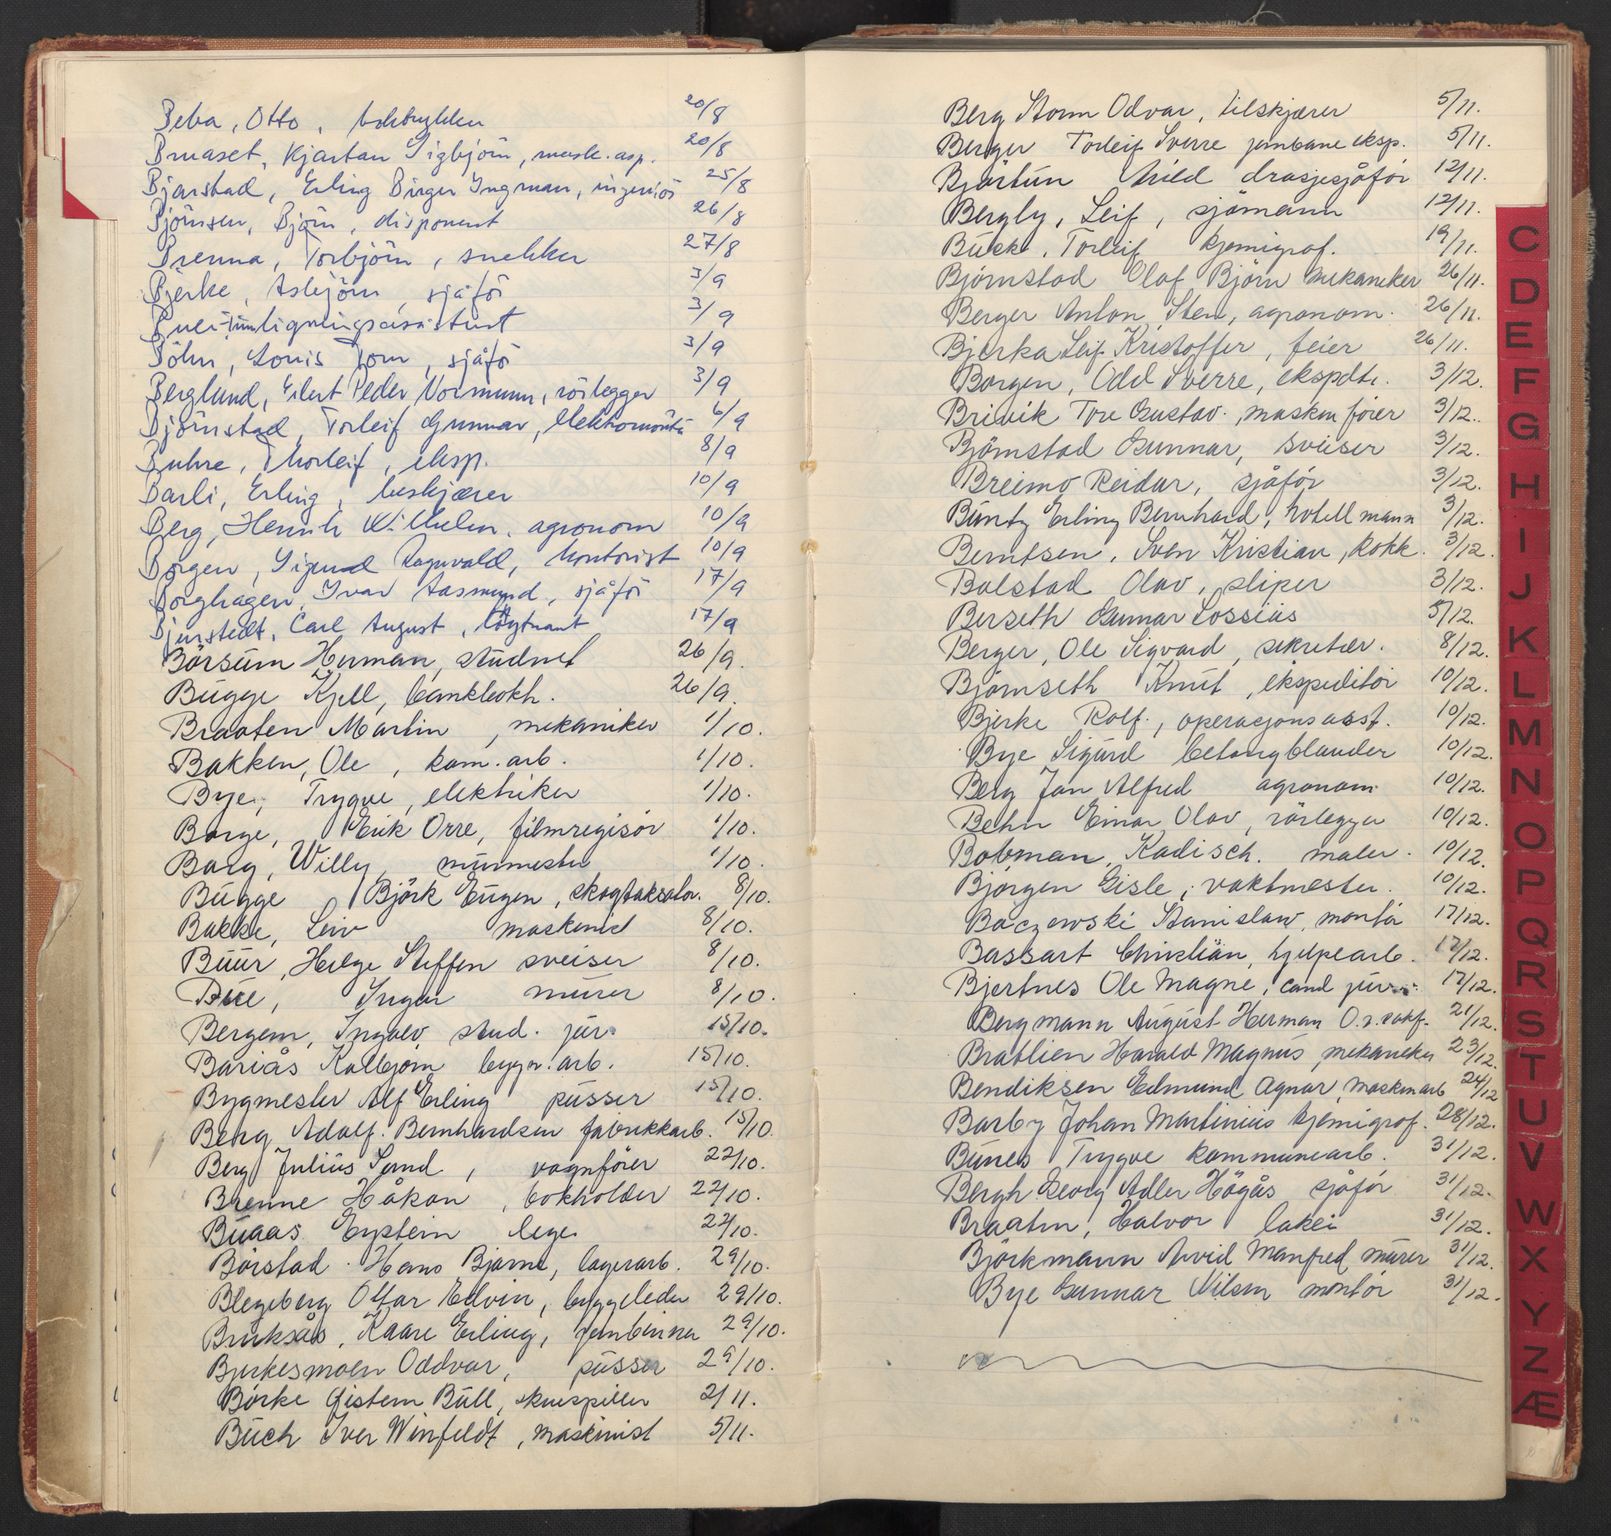 Beba, Otto,  20/8
Bruaset, Kjartan Sigbjörn, mask. asp. 20/8
Bjarstad, Erling Birger Ingman, ingeniör 25/8
Björnsen, Björn, disponent 26/8
Brenna, Torbjörn, snekker 27/8
Bjerke, Asbjörn, sjåför 3/9
ligningsassistent 3/9
Böhn, Louis Tom, sjåför 3/9
Berglund, Eilert Peder Normann, rörlegger 3/9
Björnstad, Torleif Gunnar, elektromontör 6/9
Buhre, Thorleif, eksp. 8/9
Barli, Erling, beskjærer 10/9
Berg, Henrik Wilhelm, agronom 10/9
Borgen, Sigurd Ragnvald, kontorist 10/9
Borghagen, Ivar Aasmund, sjåför 17/9
Bjurstedt, Carl August, löytnant 17/9
Börsum Herman, studnet 26/9.
Bugge Kjell, bankbokh. 26/9.
Braaten Martin, mekaniker 1/10.
Bakken, Ole, kom. arb. 1/10.
Bye, Trygve, elektriker 1/10.
Borge, Erik Orre, filmregisör 1/10.
Borg, Willy, murmester 1/10.
Bugge Björk Eugen, skogtaksator. 8/10.
Bakke, Leiv maskinist 8/10.
Buur, Helge Steffen sveiser 8/10.
Bue, Ingar murer 8/10.
Bergem, Ingolv, stud. jur. 15/10.
Bariås Kolbjørn bygn. arb. 15/10.
Bygmester Alf Erling pusser 15/10.
Berg Adolf Bernhardsen fabrikkarb. 15/10.
Berg Julius Sand, vognfører 22/10.
Brenne Håkon, bokholder 22/10.
Buaas Eystein lege 22/10.
Börstad Hans Bjarne, lagerarb. 29/10.
Blegeberg Ottar Edvin, byggeleder 29/10.
Bruksås, Kaare Erling, jernbinner 29/10.
Bjerkesmoen Oddvar, pusser 29/10.
Börke Öistein Bull, skuespiller 2/11.
Buch Iver Winfeldt, maskinist 5/11.
Berg Storm Odvar, tilskjærer 5/11.
Berger Torleif Sverre jernbane eksp. 5/11.
Bjørtun Arild drosjesjåför 12/11.
Bergly, Leif, sjömann 12/11.
Bukk, Torleif kjemigraf. 19/11.
Bjørnstad Olaf Bjørn mekaniker 26/11.
Berger Anton Sten, agronom. 26/11.
Bjerka Leif Kristoffer, feier 26/11.
Borgen, Odd Sverre, ekspdtr. 3/12.
Brivik Tore Gustav. maskin förer 3/12.
Björnstad Gunnar, sveiser 3/12.
Breimo Reidar, sjåför 3/12.
Buntz Erling Bernhard, hotellmann 3/12.
Berntsen, Sven Kristian, kokk. 3/12.
Bolstad Olav, sliper 3/12.
Berseth Gunnar Lossius 5/12.
Berger, Ole Sigvard, sekretær. 8/12.
Bjørnseth Knut, ekspeditör 10/12.
Bjerke Rolf, operasjonsasst. 10/12.
Bye Sigurd betongblander 10/12.
Berg Jan Alfred agronom 10/12.
Behn Einar Olav, rörlegger 10/12.
Bobman, Kadisch. maler. 10/12.
Bjørgen Gisle, vaktmester. 10/12.
Baczewski Stanislaw, montör 17/12.
Bassart Christian, hjelpearb. 17/12.
Bjertnes Ole Magne, cand jur. 17/12.
Bergmann August Herman O.r. sakf. 21/12.
Bratlien Harald Magnus, mekaniker 23/12.
Bendiksen Edmund Agnar, maskinarb 24/12
Barby Johan Martinius kjemigraf. 28/12.
Bunes Trygve kommunearb. 31/12.
Bergh Georg Adler Högås sjåför 31/12.
Braaten, Halvor lakei 31/12.
Björkmann Arvid Manfred murer 31/12.
Bye Gunnar Nilsen montör 31/12.
C
D
E
F
G
H
I
J
K
L
M
N
O
P
Q
R
S
T
U
V
W
X
Y
Z
Æ